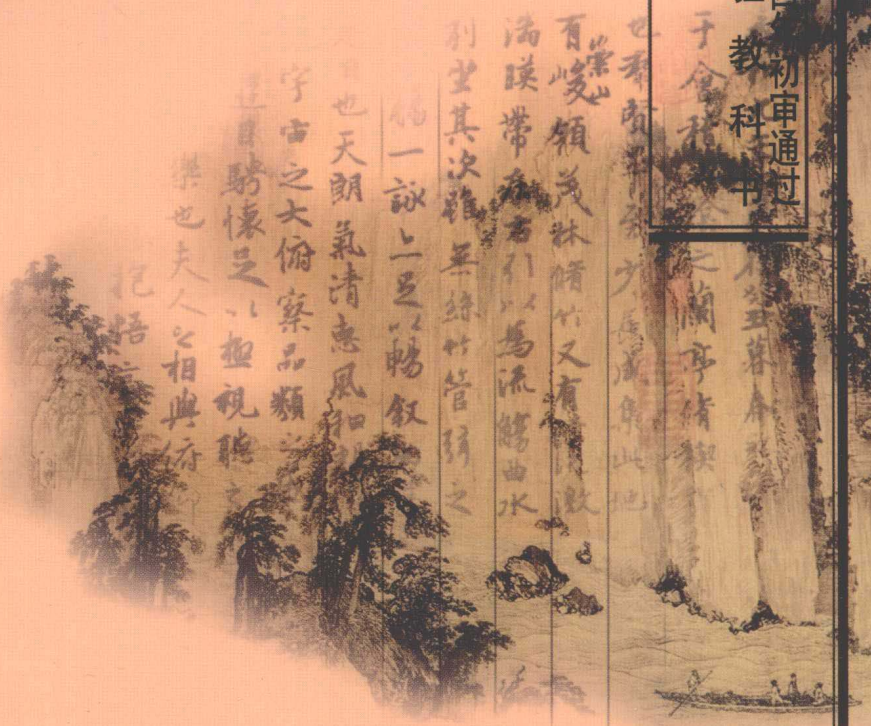 初审通过
教科书
癸丑暮春
于會稽山陰之蘭亭脩禊
也羣賢畢至少長咸集此地
有崇山峻領茂林脩竹又有清流激
湍暎帶左右引以為流觴曲水
列坐其次雖無絲竹管弦之
觴一詠亦足以暢敘
日也天朗氣清惠風和暢
宇宙之大俯察品類之
遊目騁懷足以極視聽之
樂也夫人之相與俯仰
抱悟言